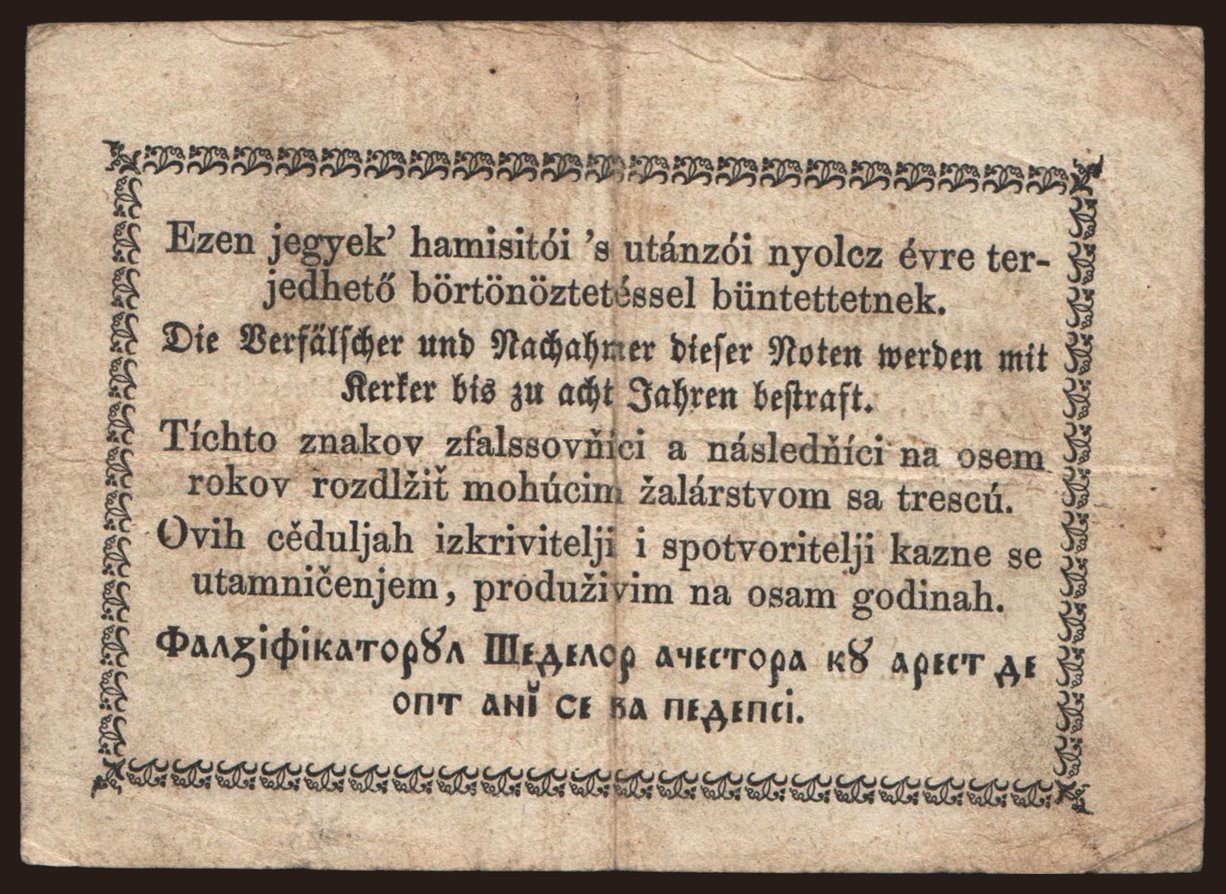 Ezen jegyek’ hamisitói ’s utánzói nyolcz évre ter-
jedhető börtönöztetéssel büntettetnek.
Die Verfälscher und Nachahmer dieser Noten werden mit
Kerker bis zu acht Jahren bestraft.
Tíchto znakov zfalssovňici a následňíci na osem
rokov rozdlžiť mohúcim žalárstvom sa trescú.
Ovih cěduljah izkrivitelji i spotvoritelji kazne se
utamničenjem, produživim na osam godinah.
Фалꙁіфікаторꙋл Шеделор ачестора кꙋ арест де
опт анĭ се ва педепсі.